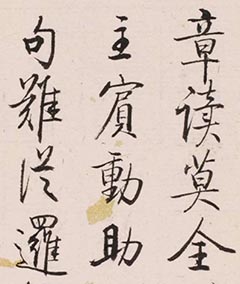 章读莫全
主賓動助
句難從邏